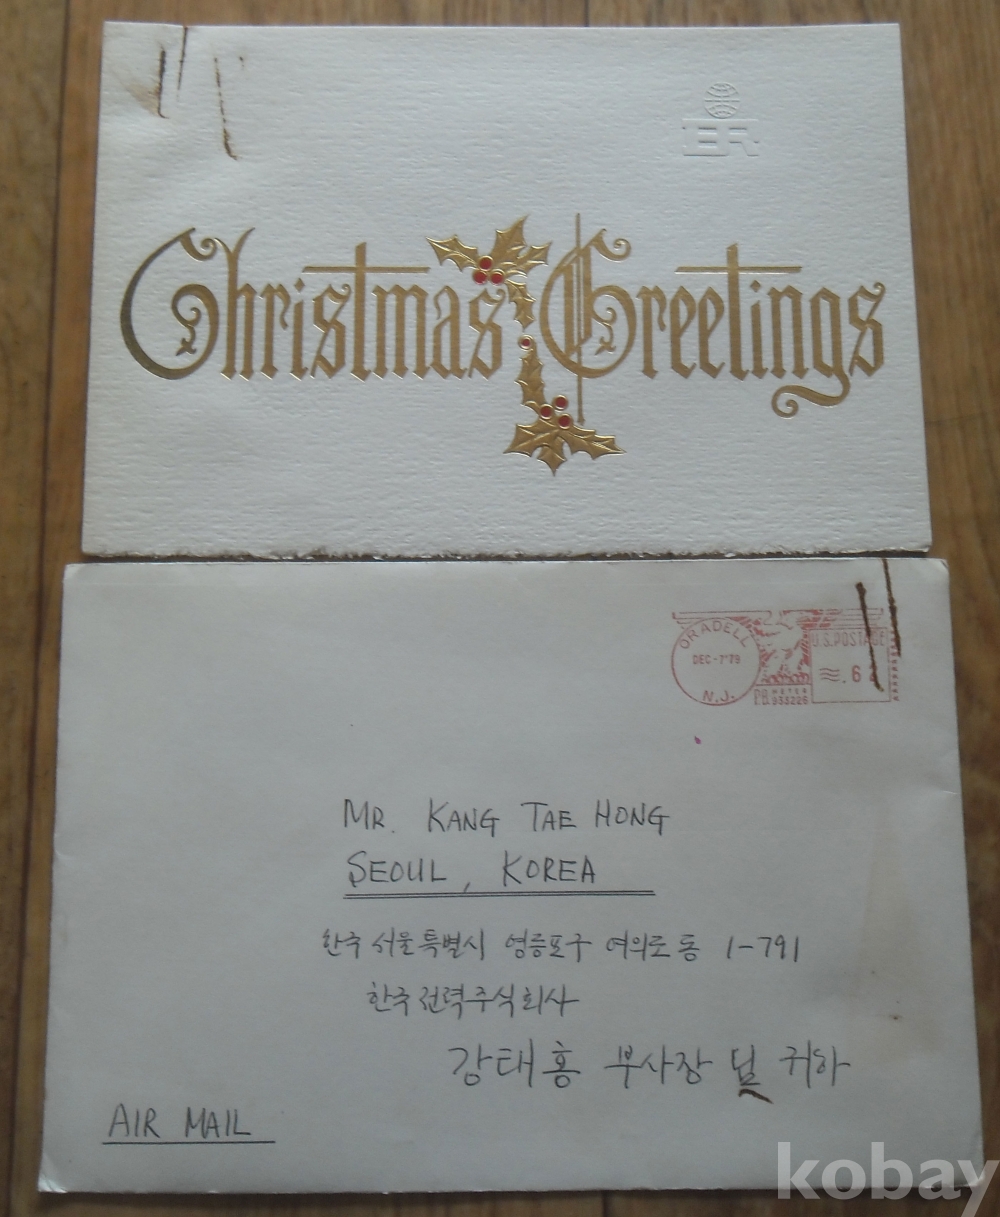 Christmas Greetings
ORADELL
DEC-7'79
N.J.
U.S. POSTAGE
P.B. METER
933226
MR. KANG TAE HONG
SEOUL, KOREA
한국 서울특별시 영등포구 여의도동 1-791
한국전력주식회사
강태홍 부사장 님 귀하
AIR MAIL
kobay